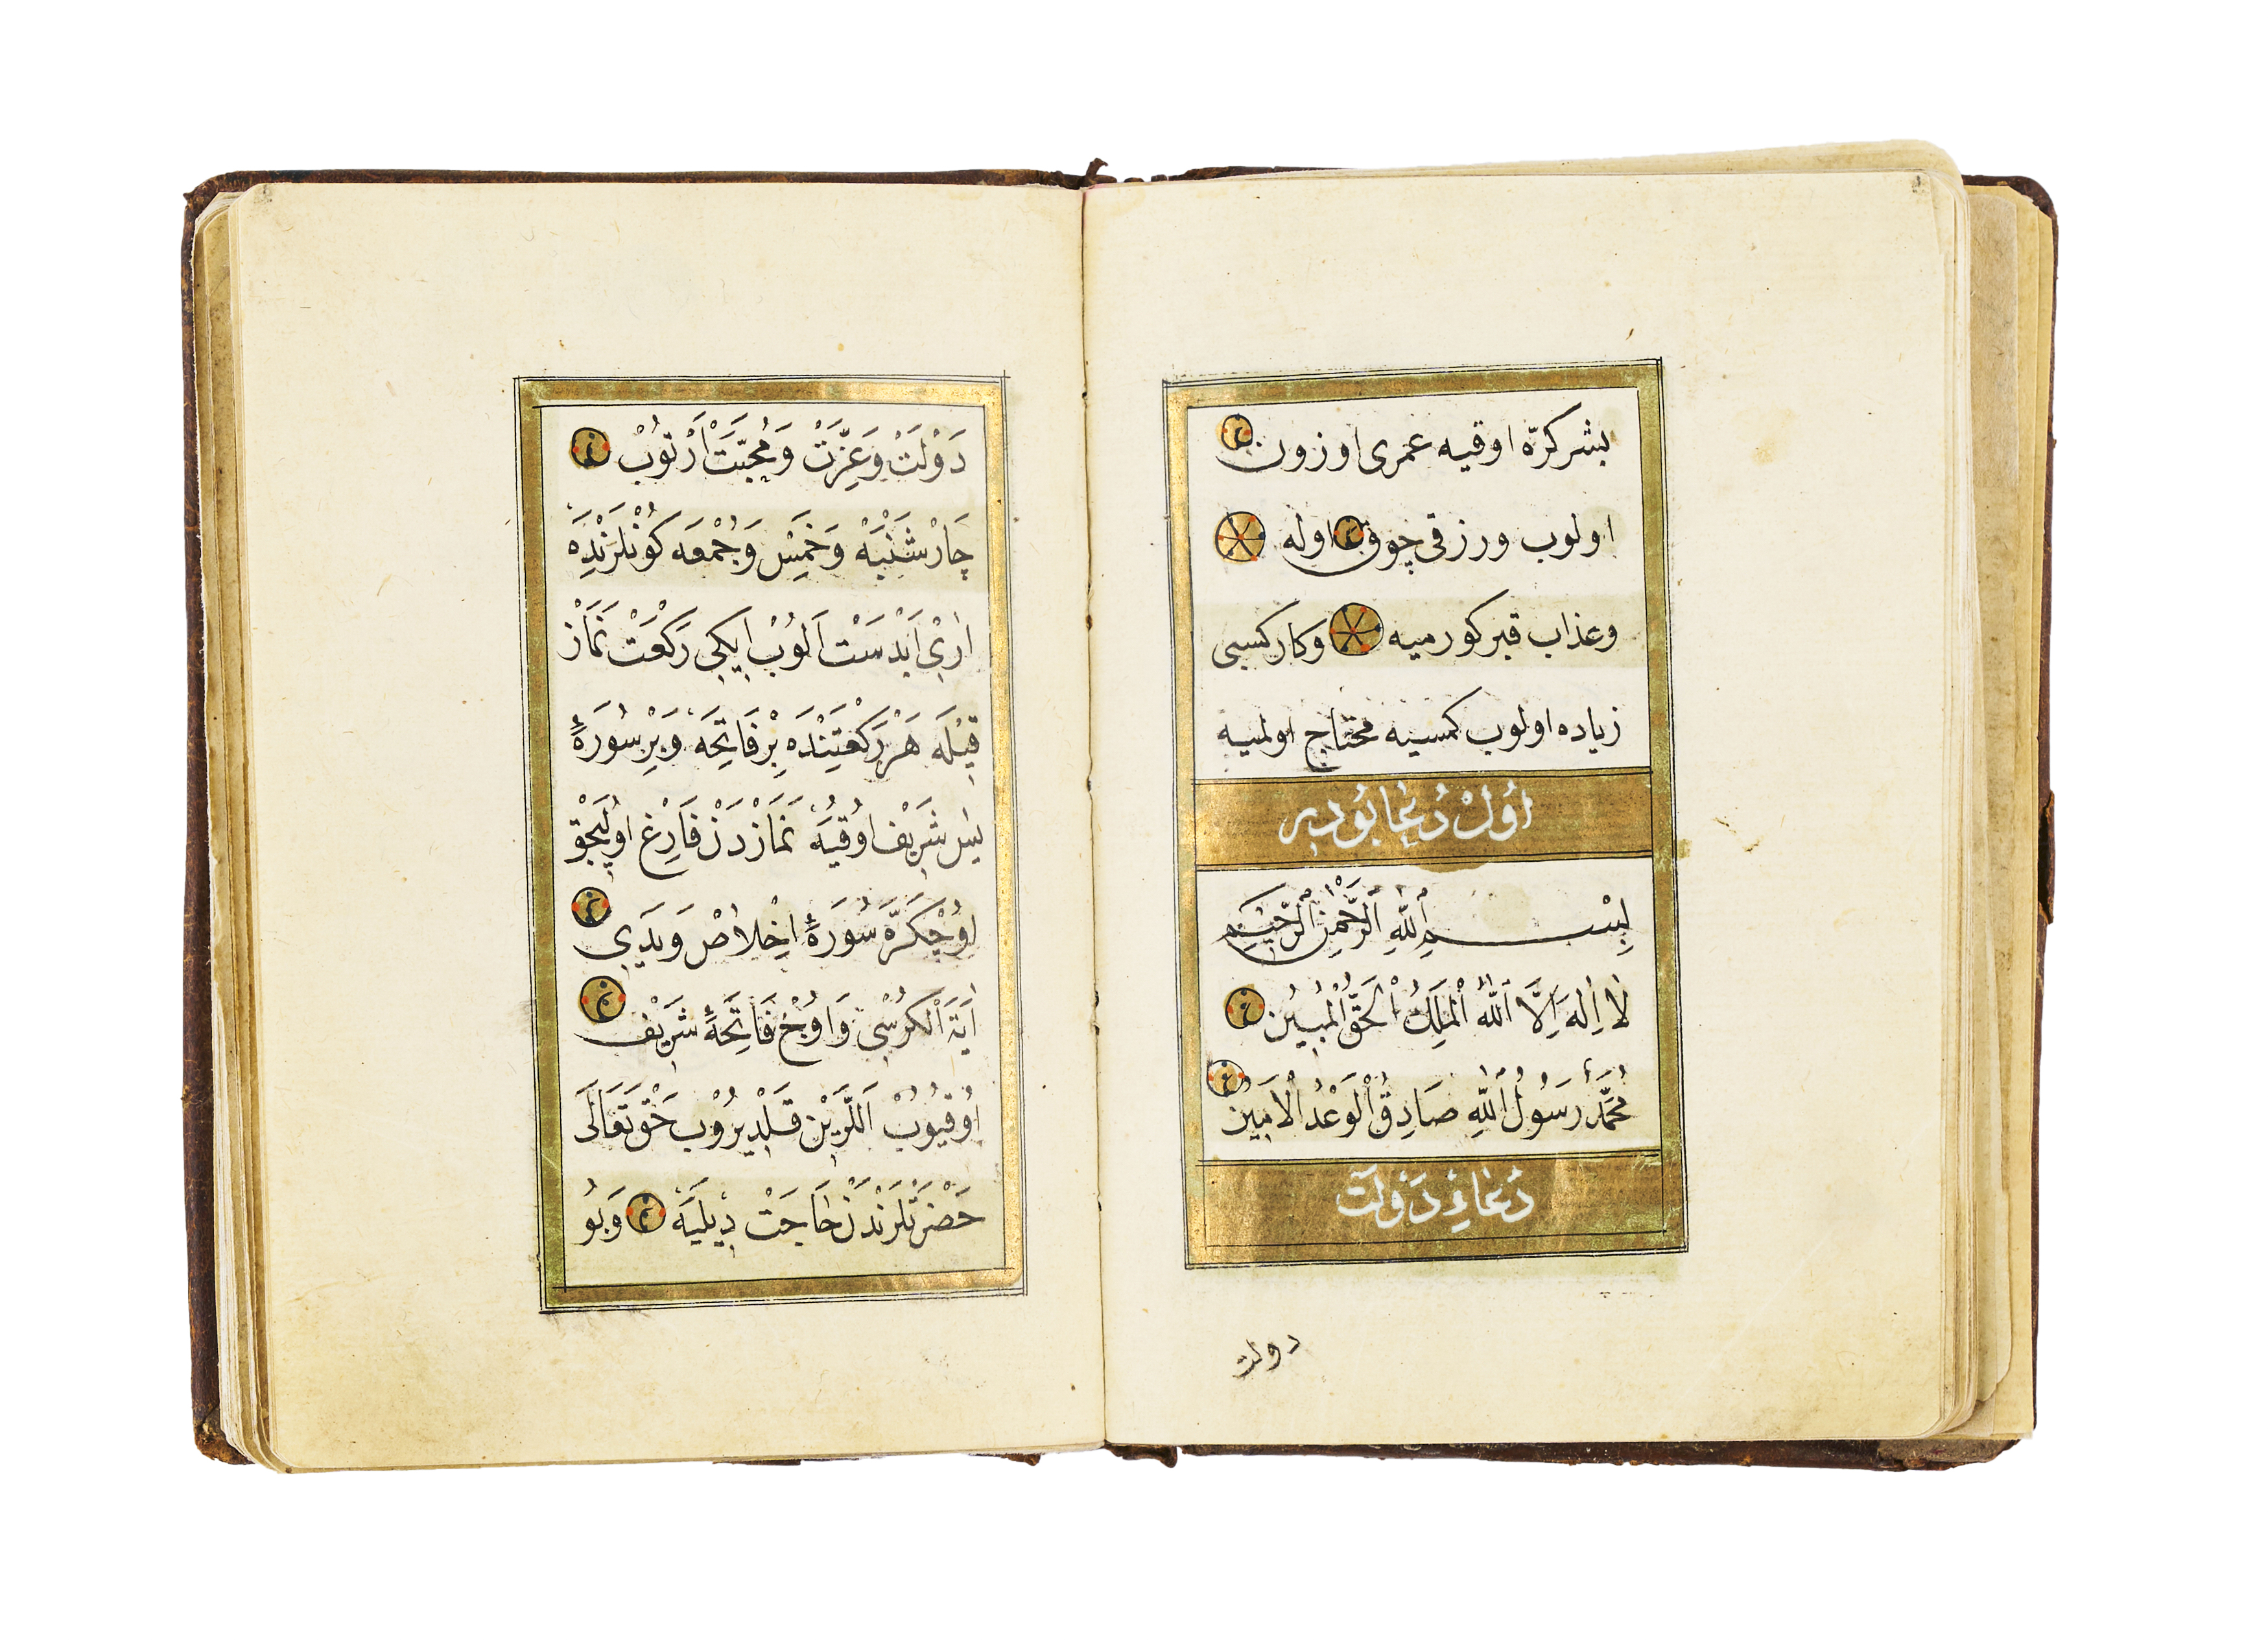 بشر كرّه اوقيه عمرى اوزون
اولوب ورزقى چوق اوله
وعذاب قبر كورميه وكار كسبى
زياده اولوب كمسيه محتاج اولميه
اُولْ دُعَا بُودِر
بِسْمِ اللّٰهِ الرَّحْمٰنِ الرَّحٖيمِ
لَا اِلٰهَ اِلَّا اللّٰهُ الْمَلِكُ الْحَقُّ الْمُبٖينُ
مُحَمَّدٌ رَسُولُ اللّٰهِ صَادِقُ الْوَعْدُ الْاَمٖينُ
دُعَاءِ دَوْلَتْ
دولت
دَوْلَتْ وَعِزَّتْ وَمُحِبَّتْ اَرْتُوبْ
چَارْشَنْبَهْ وَخَمِيسْ وَجُمْعَه كُونْلَرَنْدِهَ
اٰرِيْ اَبْدَسَتْ اَلُوبْ اِيكِي رَكْعَتْ نَمَازْ
قِيْلَه هَرْ رَكْعَتِنْدَه بِرْ فَاتِحَه وَبِرْ سُورَۀِ
يٰسۤ شَرِيْفْ اوُقُيَه نَمَازْدَنْ فَارِغْ اوُلِيجَقْ
اوُچْ كَرَّه سُورَۀِ اِخْلَاصْ وَيَدِي
اٰيَةَ الْكُرْسِي وَاوُچْ فَاتِحَۀِ شَرِيْفْ
اوُقُيُوبْ اَللَّرِيْنْ قَلْدِيرُوبْ حَقْ تَعَالَى
حَضْرَتْلَرَنْدَنْ حَاجَتْ دِيلَيَه وَبُو